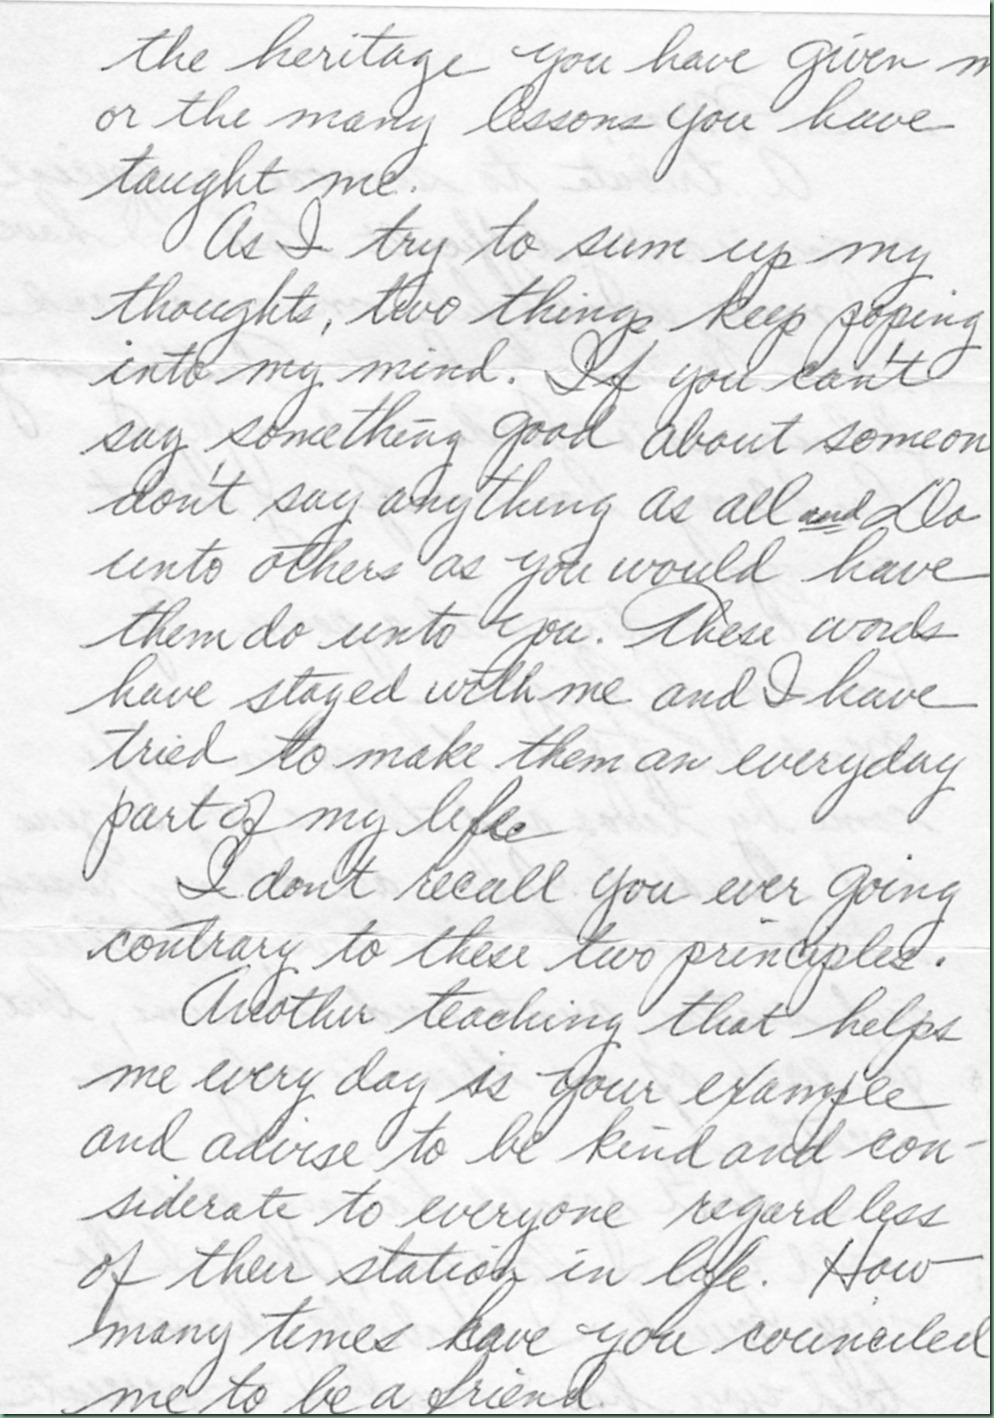 the heritage you have given m
or the many lessons you have
taught me.
As I try to sum up my
thoughts, two things keep poping
into my mind. If you can't
say something good about someon
don't say anything as all and Do
unto others as you would have
them do unto you. These words
have stayed with me and I have
tried to make them an everyday
part of my life.
I don't recall you ever going
contrary to these two principles.
Another teaching that helps
me every day is your example
and advise to be kind and con-
siderate to everyone regardless
of their station in life. How
many times have you counciled
me to be a friend.